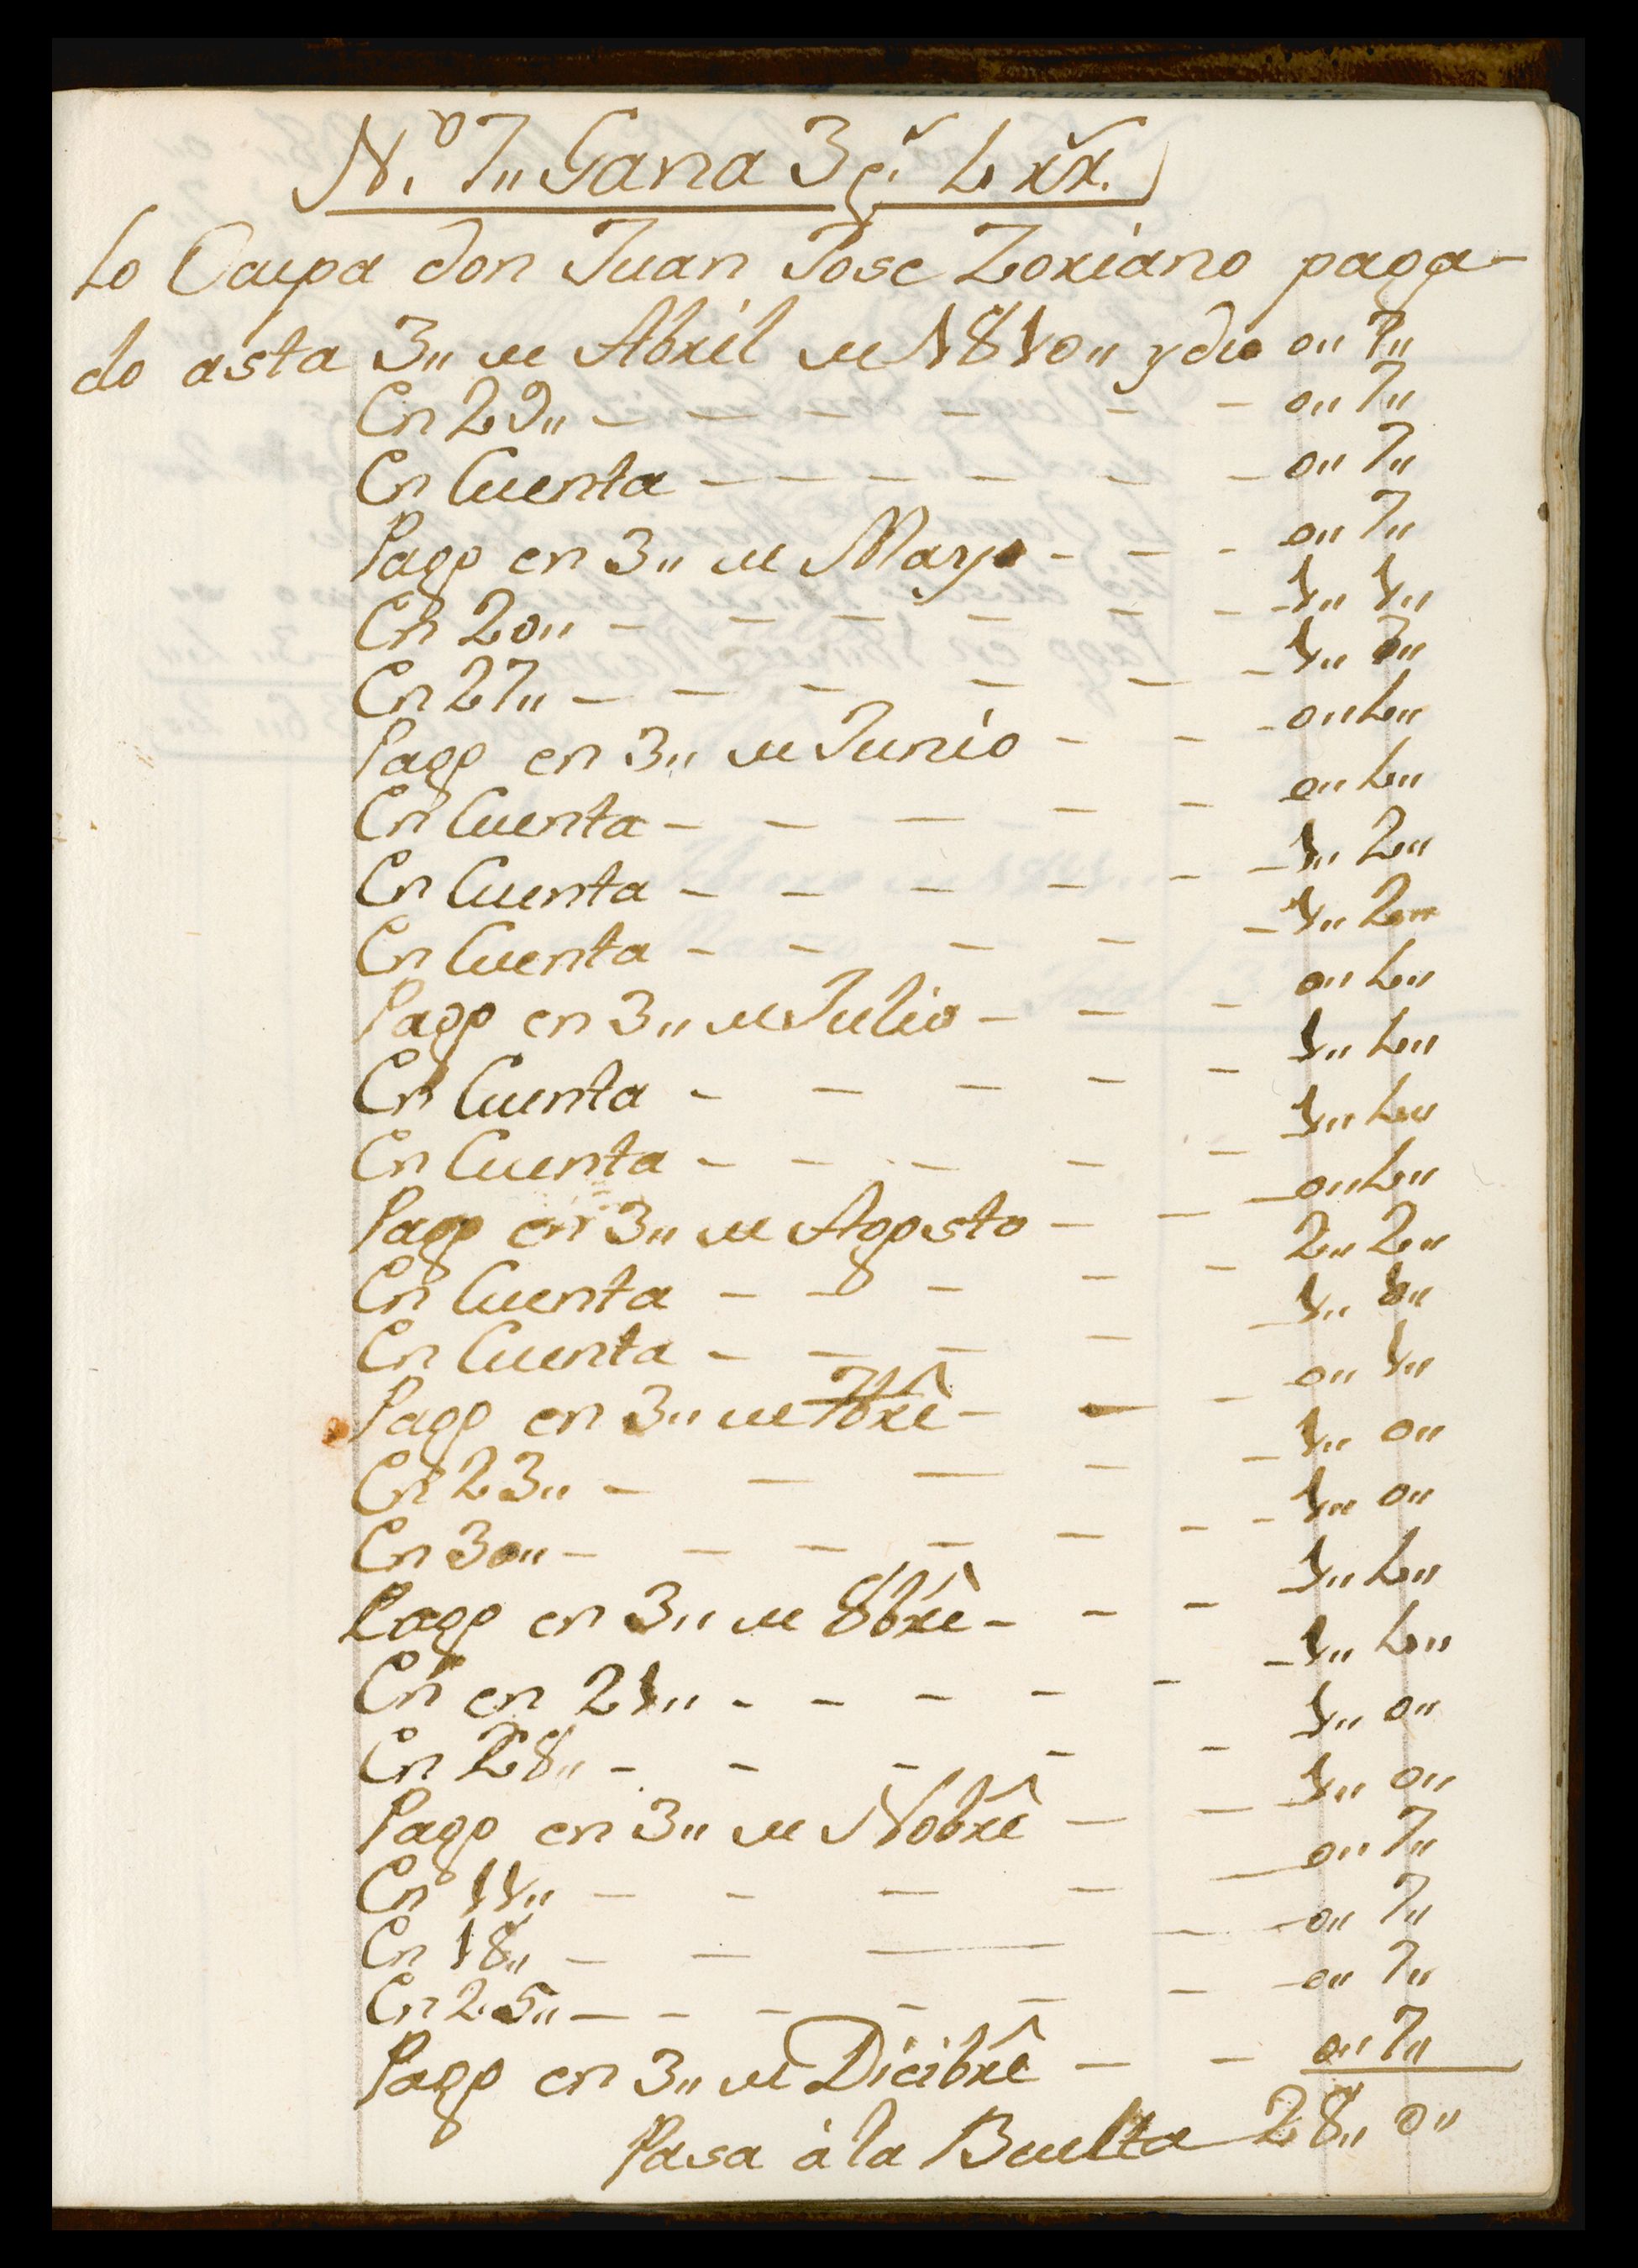 N.º 7,, Gana 3 p.s 4 rr.
lo Ocupa don Juan Jose Zoriano paga-
do asta 3,, de Abril de 1810,, y dio 0,, 7,,
En 29,, - - - - - - 0,, 7,,
En Cuenta - - - - - - 0,, 7,,
Pago en 3,, de Mayo - - - 0,, 7,,
En 20,, - - - - - - 1,, 1,,
En 27,, - - - - - - 1,, 7,,
Pago en 3,, de Junio - - - 0,, 4,,
En Cuenta - - - - - 0,, 4,,
En Cuenta - - - - - - 1,, 2,,
En Cuenta - - - - - 1,, 2,,
Pago en 3,, de Julio - - - 0,, 4,,
En Cuenta - - - - - 1,, 4,,
En Cuenta - - - - - 1,, 4,,
Pago en 3,, de Agosto - - - 0,, 4,,
En Cuenta - - - - - 2,, 2,,
En Cuenta - - - - - 1,, 1,,
Pago en 3,, de 7bre - - - 0,, 1,,
En 23,, - - - - - 1,, 0,,
En 30,, - - - - - - - 1,, 0,,
Pago en 3,, de 8bre - - - 1,, 4,,
En en 21,, - - - - - - 1,, 4,,
En 28,, - - - - - 1,, 0,,
Pago en 3,, de Nobre - - 1,, 0,,
En 11,, - - - - - 0,, 7,,
En 18,, - - - - - 0,, 7,,
En 25,, - - - - - - - 0,, 7,,
Pago en 3,, de Dicibre - - 0,, 7,,
Pasa à la Buelta 28,, 0,,